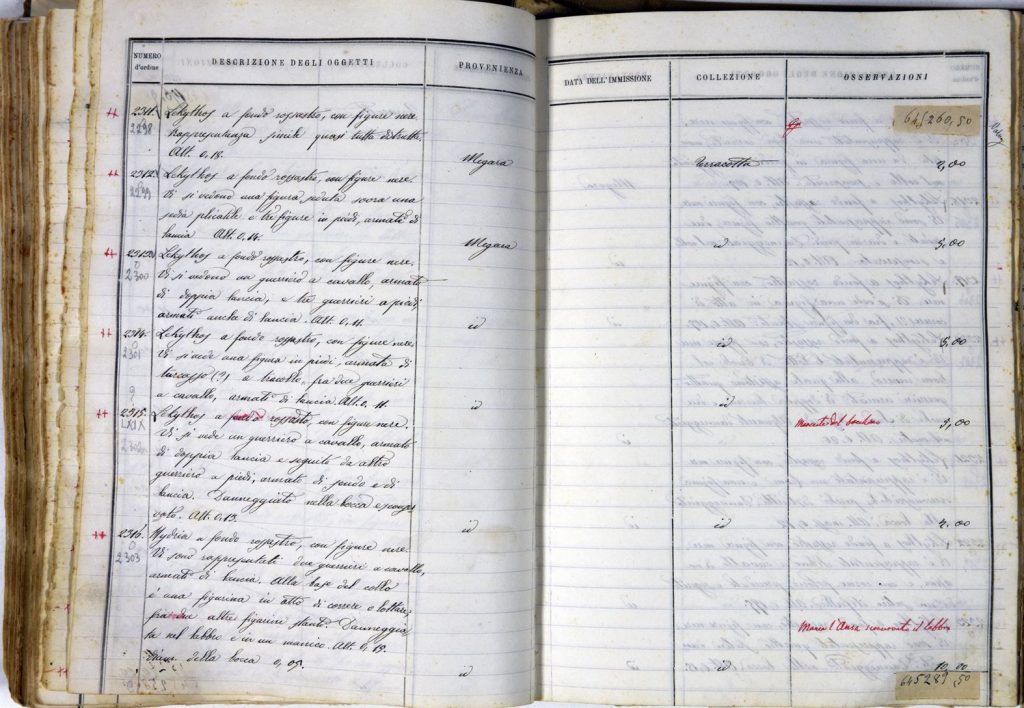 NUMERO d'ordine
DESCRIZIONE DEGLI OGGETTI
PROVENIENZA
DATA DELL'IMMISSIONE
COLLEZIONE
OSSERVAZIONI
645260,50
2311. Lekythos a fondo rossastro, con figure nere.
2298 Rappresentanza simile quasi tutta distrutta.
Alt. 0,18. Megara Terracotta 2,00
2312. Lekythos a fondo rossastro, con figure nere.
2299 Vi si vedono una figura seduta sovra una
sedia plicatile e tre figure in piedi, armate di
lancia Alt. 0,14. Megara id 3,00
2313. Lekythos a fondo rossastro, con figure nere.
2300 Vi si vedono un guerriero a cavallo, armato
di doppia lancia, e tre guerrieri a piedi,
armati anche di lancia. Alt. 0,11. id id 3,00
2314. Lekythos a fondo rossastro, con figure nere.
2301 Vi si vede una figura in piedi, armata di
turcasso (?) a tracolla, fra due guerrieri
a cavallo, armati di lancia. Alt. 0,11. id id 3,00
2315. Lekythos a fondo rossastro, con figure nere. Mancante del
LXIX Vi si vede un guerriero a cavallo, armato
2302 di doppia lancia e seguito da altro
guerriero a piedi, armato di scudo e di
lancia. Danneggiato nella bocca e
Alt. 0,13. id id 4.00
2316. Hydria a fondo rossastro, con figure nere.
2303 Vi sono rappresentati due guerrieri a cavallo,
armati di lancia. Alla base del collo
è una figurina in atto di correre o lottare
fra due altre figurine stanti. Danneggia
ta nel labbro e in un manico. Alt. 0,18 Manca l'ansa il labbro
diam. della bocca 0,09. id id 10,00
645289,50